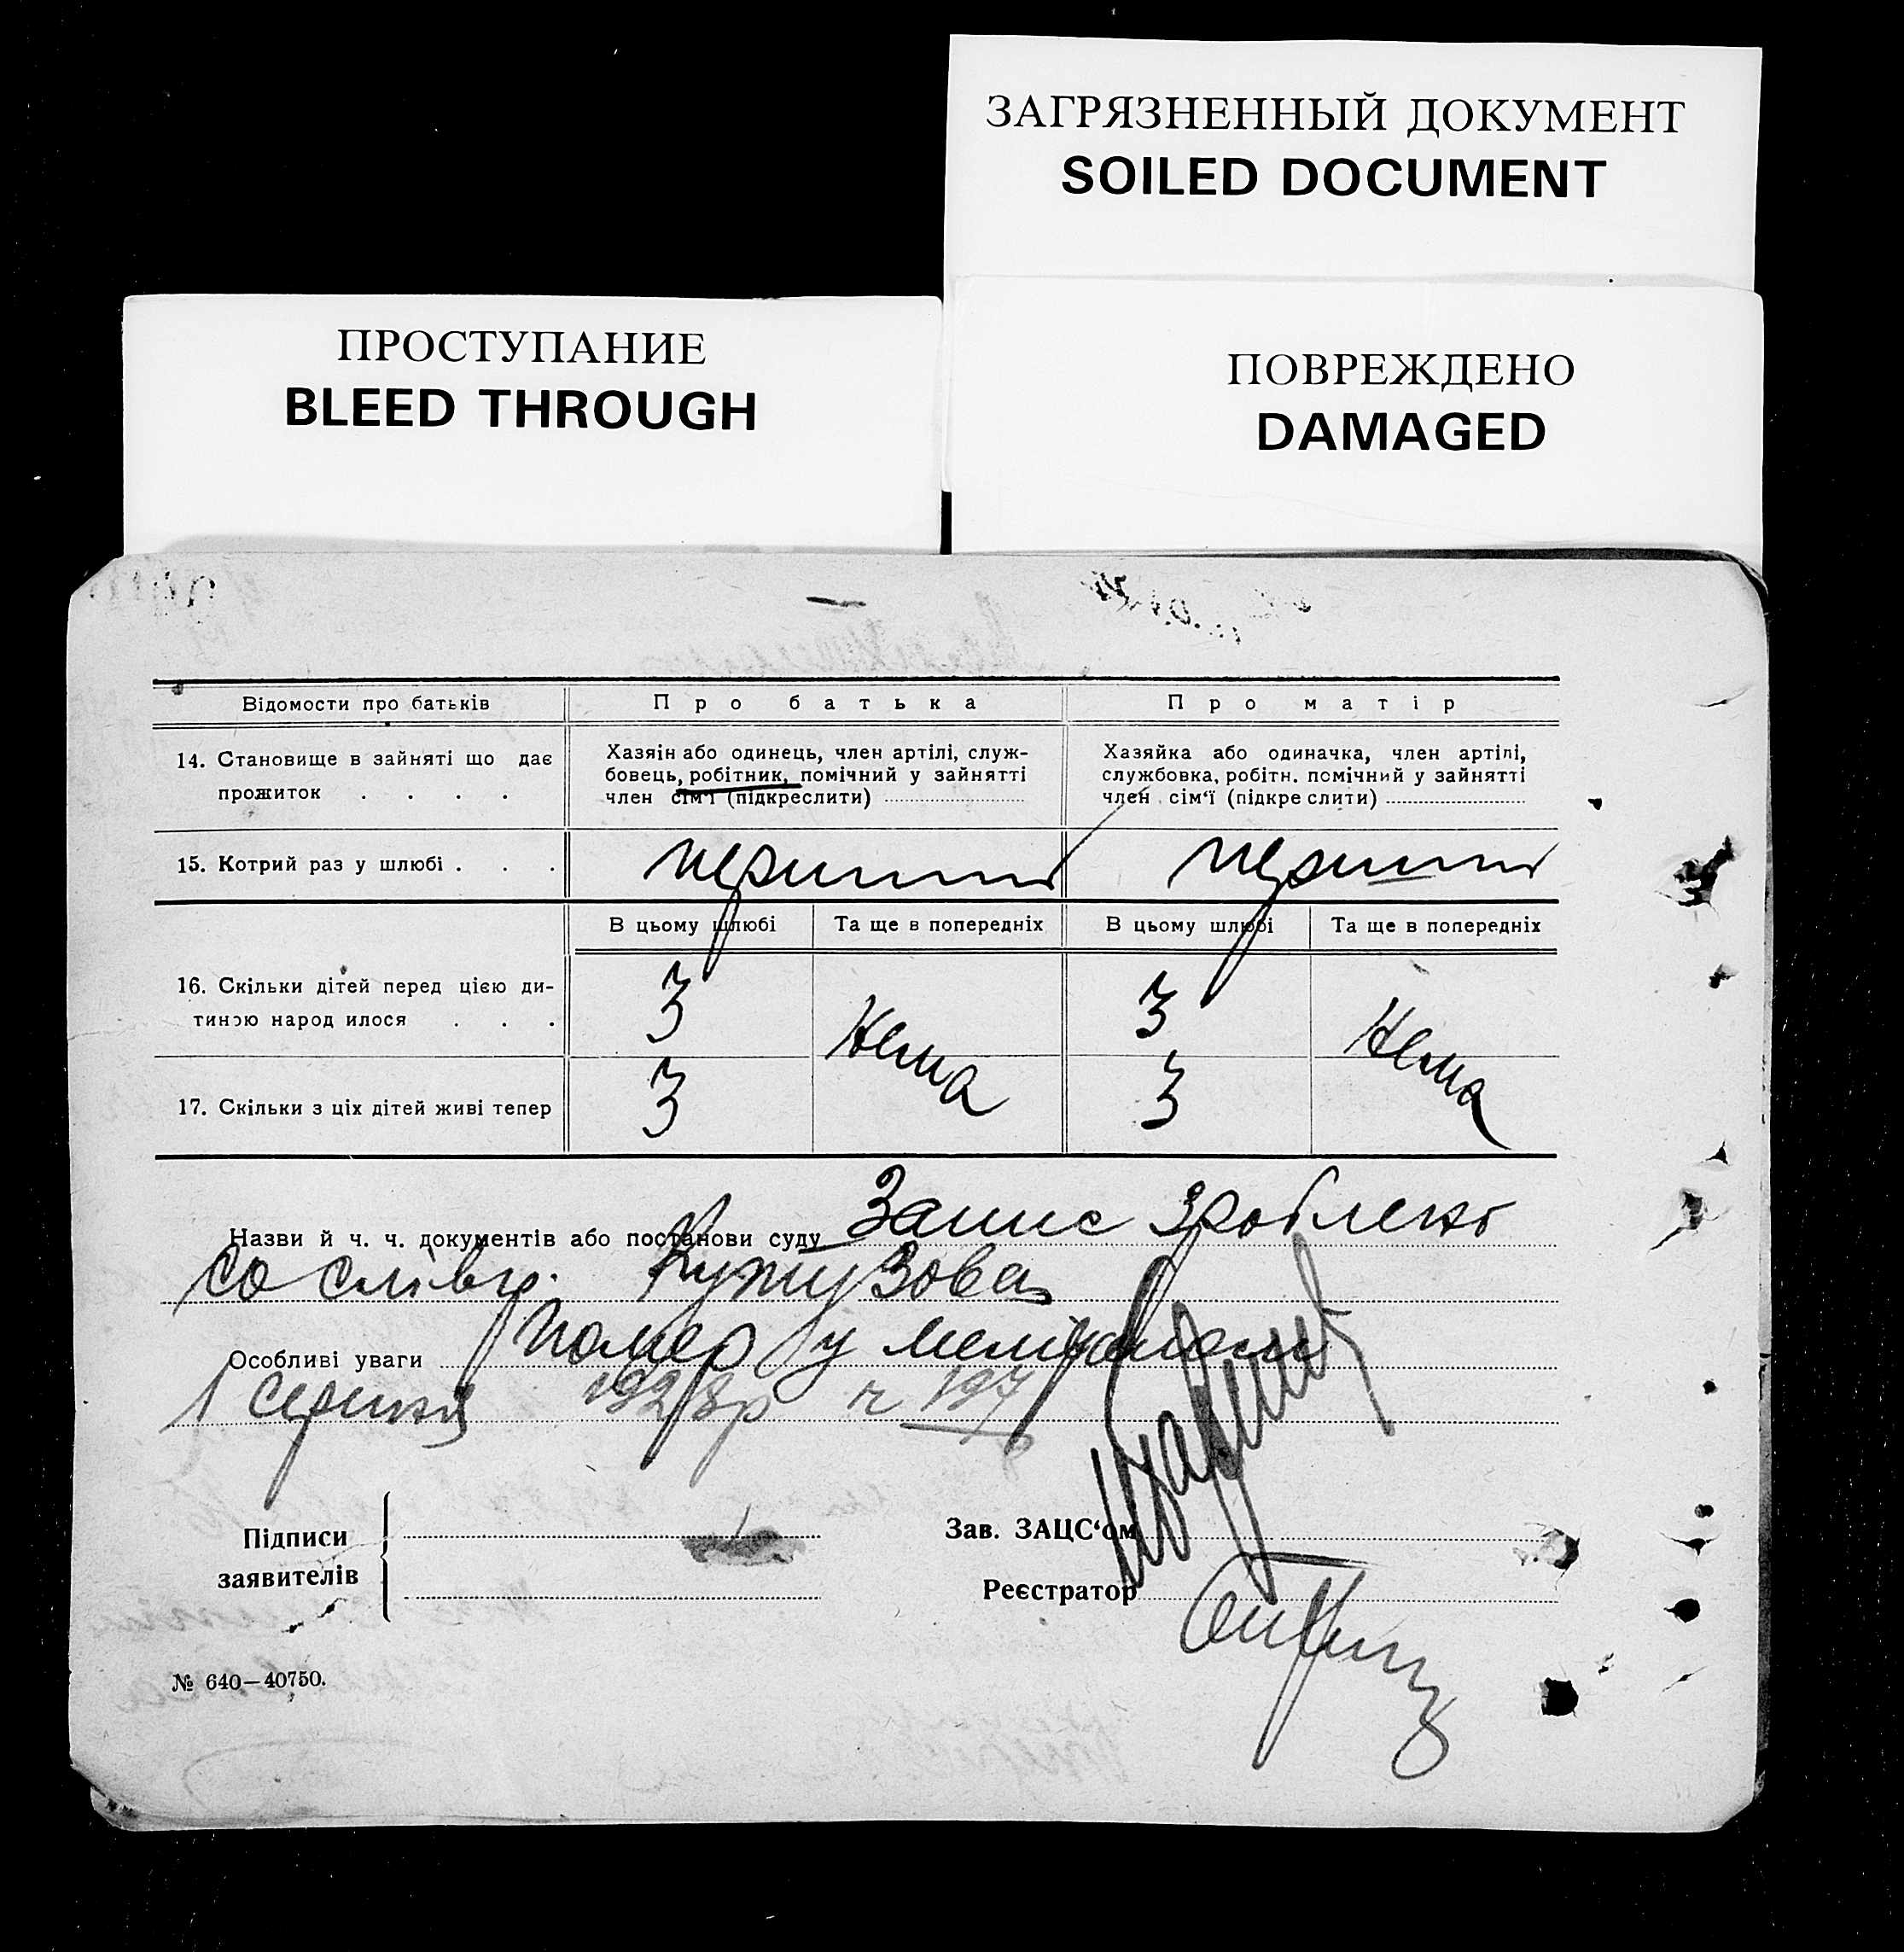 ЗАГРЯЗНЕННЫЙ ДОКУМЕНТ
SOILED DOCUMENT
ПРОСТУПАНИЕ
BLEED THROUGH
ПОВРЕЖДЕНО
DAMAGED
Відомости про батьків
Про батька
Про матір
14. Становище в зайняті що дає
прожиток . . . .
Хазяін або одинець, член артілі, служ-
бовець, робітник, помічний у зайнятті
член сім'ї (підкреслити)
Хазяйка або одиначка, член артілі,
службовка, робітн. помічний у зайнятті
член сім'ї (підкреслити)
15. Котрий раз у шлюбі . . .
перший
перший
В цьому шлюбі
Та ще в попередніх
В цьому шлюбі
Та ще в попередніх
16. Скільки дітей перед цією ди-
тиною народ илося . . .
3
Нема
3
Нема
17. Скільки з ціх дітей живі тепер
3
3
Назви й ч. ч. документів або постанови суду Запис зроблено
со слів гр. Кутузова
Особливі уваги Помер у Мелітополі
1 серпня 1928р ч 197
Підписи
заявителів
Зав. ЗАЦС'ом
Реєстратор
№ 640—40750.